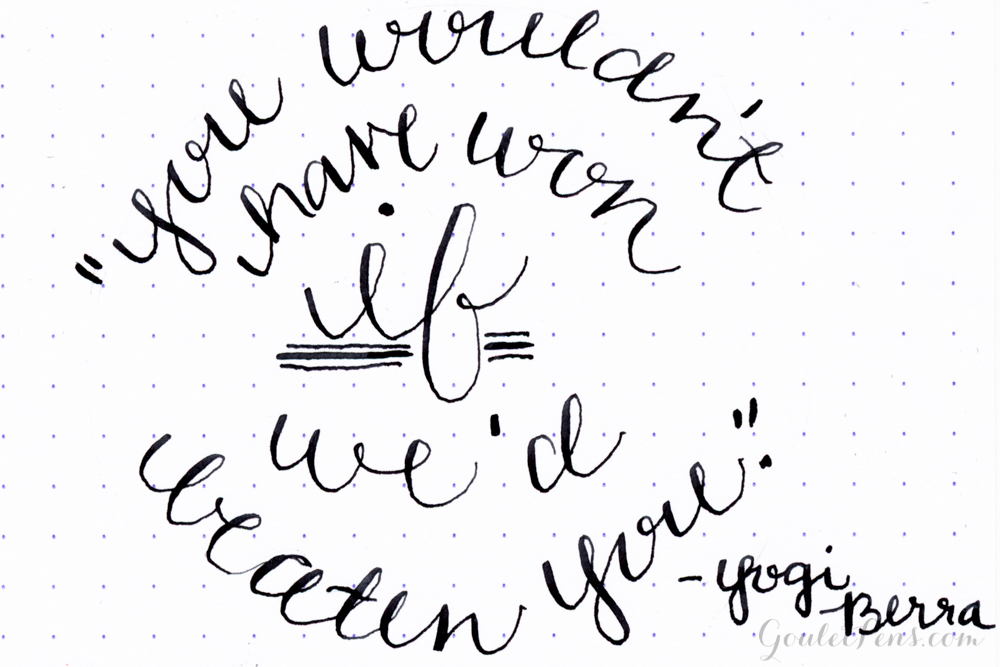 "you wouldn't
have won
if
we'd
beaten you."
- yogi
Berra
GouletPens.com